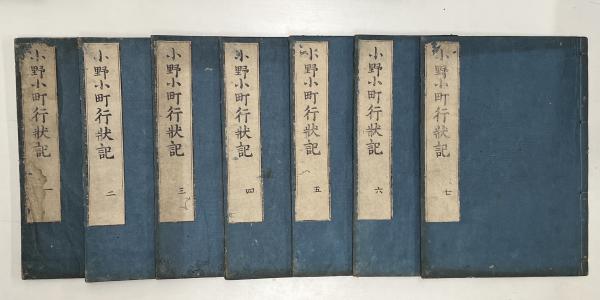 小野小町行狀記 一
小野小町行狀記 二
小野小町行狀記 三
小野小町行狀記 四
小野小町行狀記 五
小野小町行狀記 六
小野小町行狀記 七